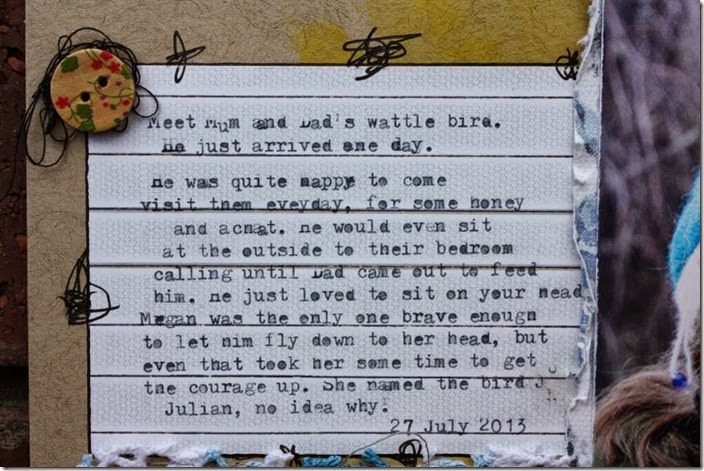 Meet Mum and Dad's wattle bird.
He just arrived one day.
He was quite happy to come
visit them eveyday, for some honey
and a chat. He would even sit
at the outside to their bedroom
calling until Dad came out to feed
him. He just loved to sit on your head
Megan was the only one brave enough
to let him fly down to her head, but
even that took her some time to get
the courage up. She named the bird
Julian, no idea why.
27 July 2013